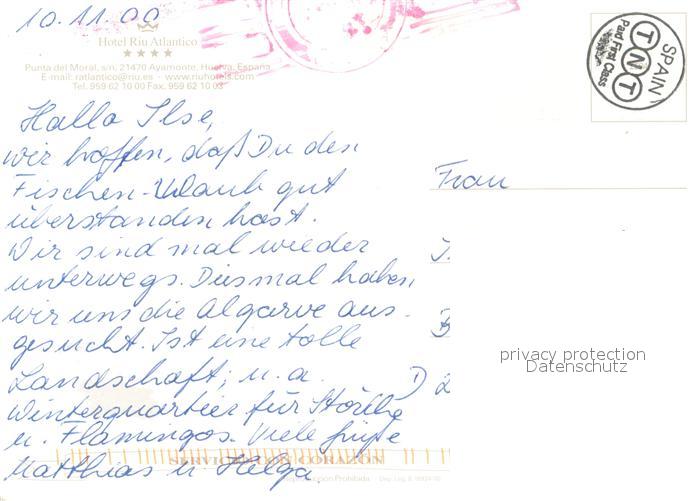 10.11.00
Hotel Riu Atlantico
★★★★
Punta del Moral, s/n, 21470 Ayamonte, Huelva, España
E-mail: ratlantico@riu.es - www.riuhotels.com
Tel. 959 62 10 00 Fax. 959 62 10 03
SPAIN
TNT
Paid First Class
Hallo Ilse,
wir hoffen, daß Du den
Fischen-Urlaub gut
überstanden hast.
Wir sind mal wieder
unterwegs. Diesmal haben
wir uns die Algarve aus-
gesucht. Ist eine tolle
Landschaft; u.a.
Winterquartier für Störche
u. Flamingos. Viele Grüße
Matthias u Helga
Frau
D
privacy protection
Datenschutz
SERVICIO CON CORAZÓN
Reproducción Prohibida